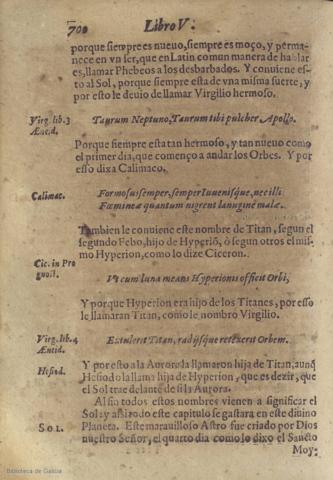 700 Libro V.
porque siempre es nueuo, siempre es moço, y perma-
nece en vn ser, que en Latin comun manera de hablar
es, llamar Phebeos a los desbarbados. Y conuiene es-
to al Sol, porque siempre esta de vna misma suerte, y
por esto le deuio de llamar Virgilio hermoso.
Virg. lib. 3
Æneid.
Taurum Neptuno, Taurum tibi pulcher Apollo.
Porque siempre esta tan hermoso, y tan nueuo como
el primer dia, que començo a andar los Orbes. Y por
esso dixo Calimaco.
Calimac.
Formosus semper, semper Iuuenisque, nec illi
Fœmineæ quantum nigrent lanugine malæ.
Tambien le conuiene este nombre de Titan, segun el
segundo Febo, hijo de Hyperiõ, ò segun otros el mis-
mo Hyperion, como lo dize Ciceron.
Cic. in Pro
gnost.
Vt cum luna means Hyperionis officit Orbi,
Y porque Hyperion era hijo de los Titanes, por esso
le llamaran Titan, como le nombrò Virgilio.
Virg. lib. 4
Æneid.
Extulerit Titan, radijsque retexerit Orbem.
Hesiod.
Y por esto a la Aurora la llamaron hija de Titan, aunq̃
Hesiodo la llama hija de Hyperion, que es dezir, que
el Sol trae delante de si la Aurora.
Al fin todos estos nombres vienen a significar el
Sol: y assi todo este capitulo se gastarà en este diuino
Sol.
Planeta. Este marauilloso Astro fue criado por Dios
nuestro Señor, el quarto dia como lo dixo el Sancto
Moy-
Biblioteca de Galicia